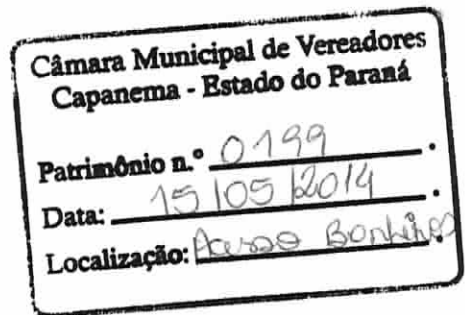 Câmara Municipal de Vereadores
Capanema - Estado do Paraná
Patrimônio n.º 0199.
Data: 15/05/2014.
Localização: Acesso